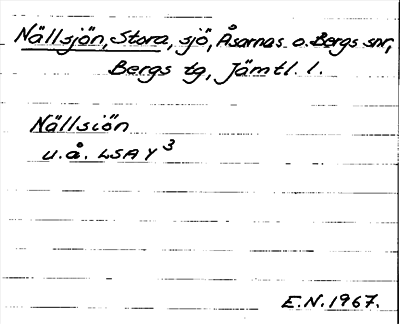 Nällsjön, Stora, sjö, Åsarnas o. Bergs snr,
Bergs tg, Jämtl. l.
Nällsiön
u.å. LSA Y3
E.N. 1967.